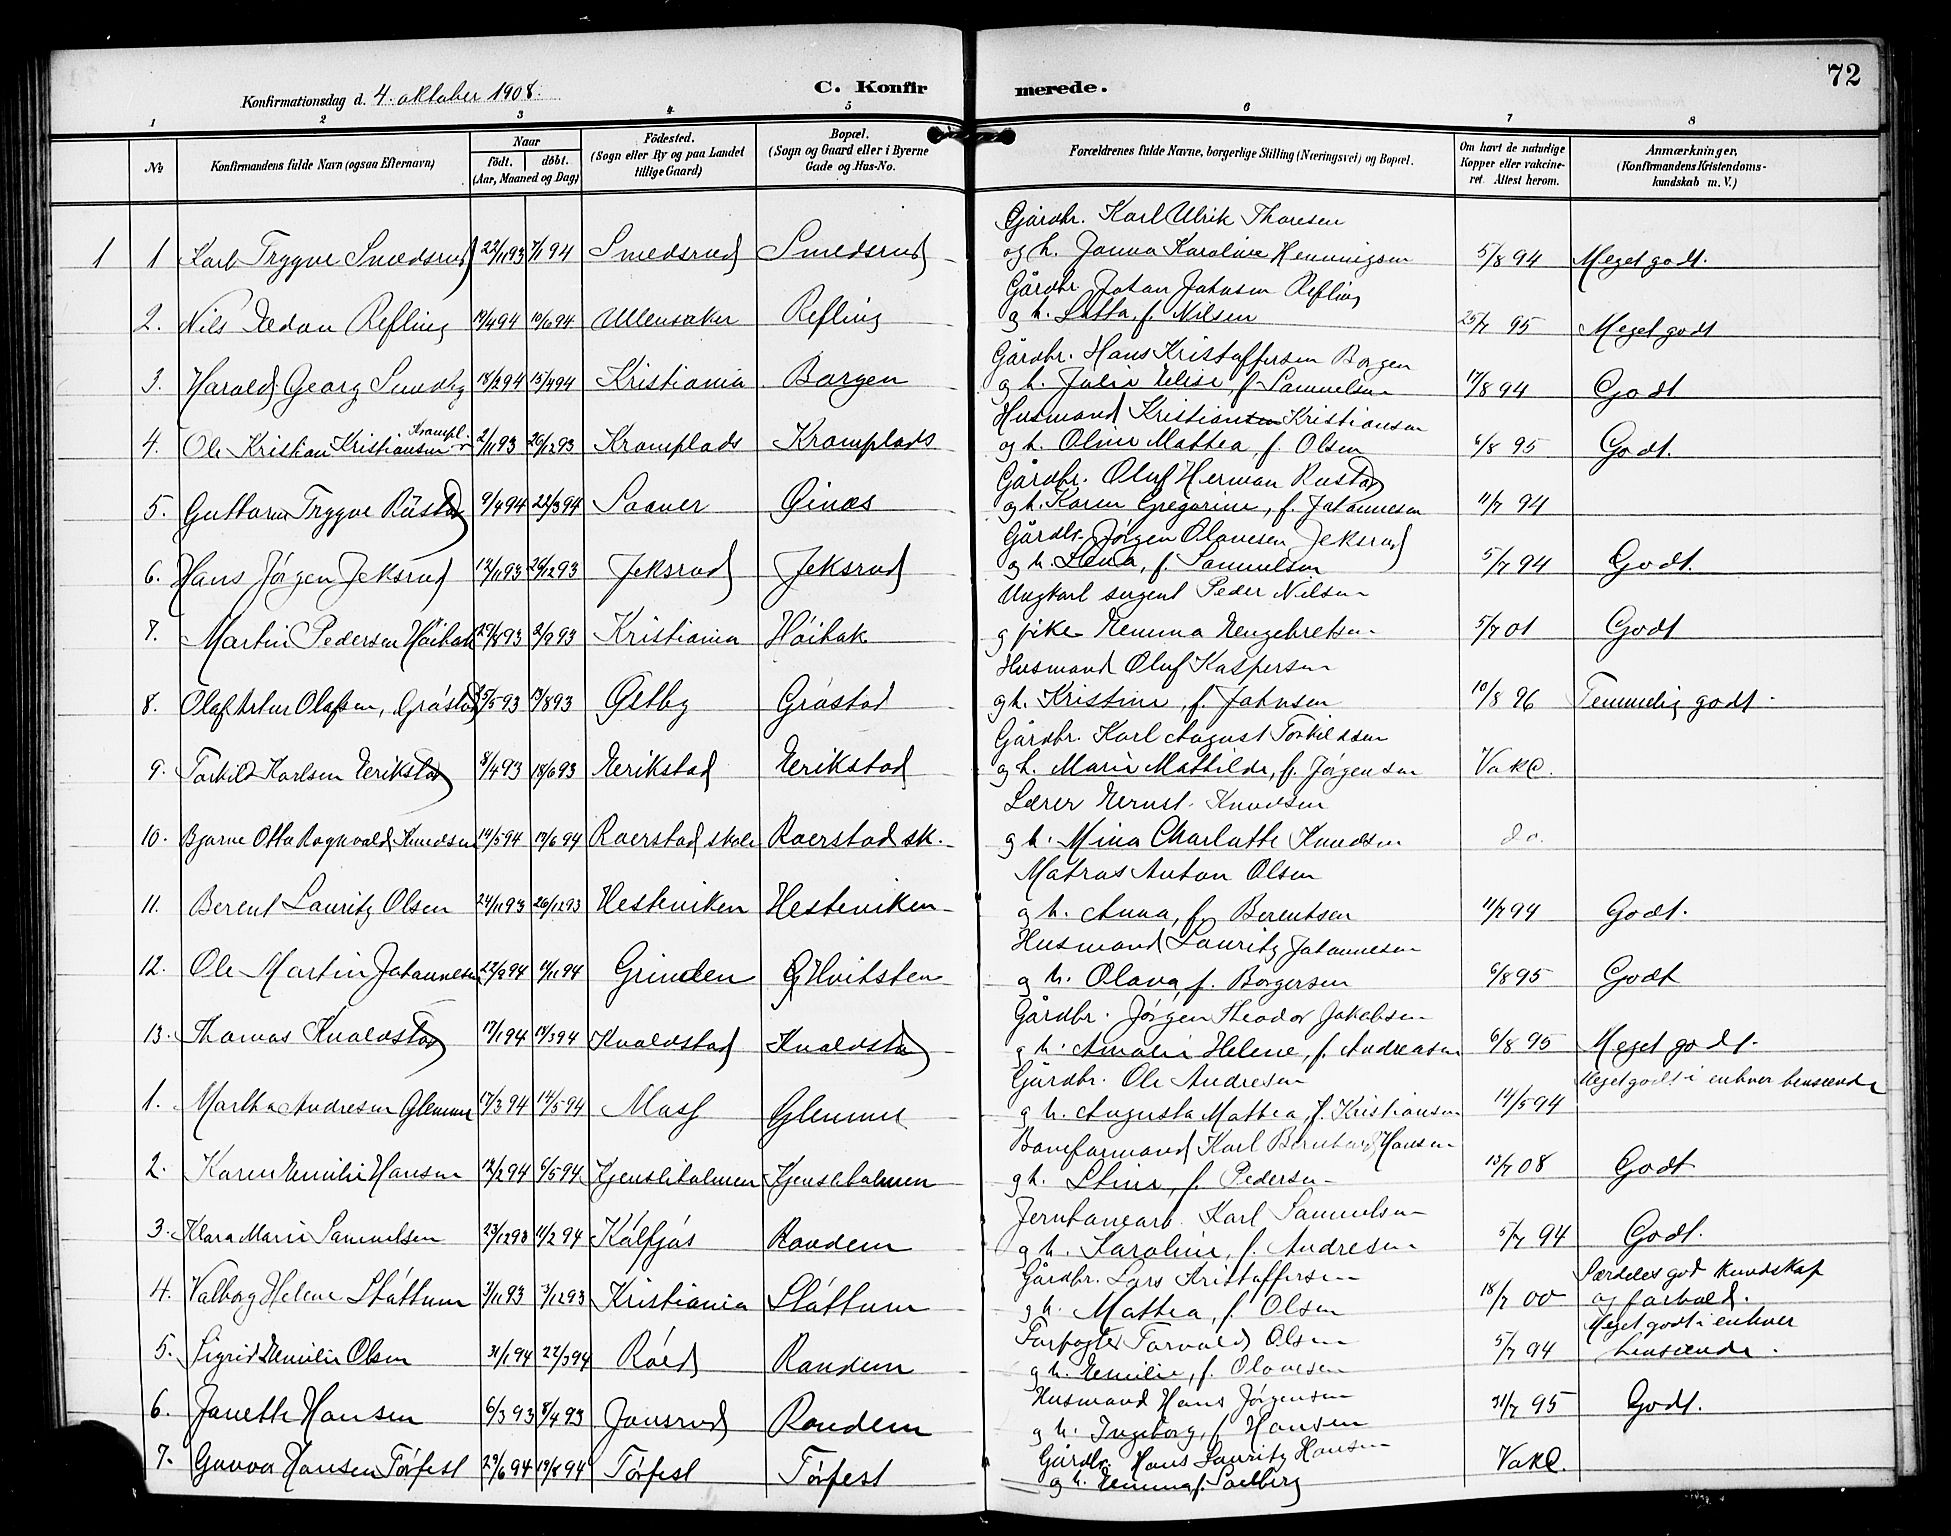 72
Konfirmationsdag d. 4. oktober 1908.
C. Konfirmerede.
1 2 3 4 5 6 7 8
No
Konfirmandens fulde Navn (ogsaa Efternavn)
Naar
födt. döbt.
(Aar, Maaned og Dag)
Födested.
(Sogn eller By og paa Landet
tillige Gaard)
Bopæl.
(Sogn og Gaard eller i Byerne
Gade og Hus-No.
Forældrenes fulde Navne, borgerlige Stilling (Næringsvei) og Bopæl.
Om havt de naturlige
Kopper eller vakcine-
ret. Attest herom.
Anmærkninger,
(Konfirmandens Kristendoms-
kundskab m. V.)
Gårdbr. Karl Ulrik Thoresen
1 1 Karl Trygve Smedsrud 22/11 93 7/1 94 Smedsrud Smedsrud og h. Janna Karoline Henningsen 5/8 94 Meget godt.
Gårdbr. Johan Johnsen Refling
2. Nils Refling 94 94 Ullensaker Refling og h. Lotta, f. Nilsen 25/7 95 Meget godt
Gårdbr. Hans Kristoffersen Borgen
3. Harald Georg Sundby 18/2 94 15/4 94 Kristiania Borgen og h. Julie Elise, f. Samuelsen 17/8 94 Godt
Husmand Kristiansen Kristiansen
4. Ole Kristian Kristiansen Krompl. 2/11 93 26/12 93 Kromplads Kromplads og h. Oline Mattea, f. Olsen 6/8 95 Godt.
Gårdbr. Oluf Herman Rustad
5. Guttorm Trygve Rustad 9/4 94 22/3 94 Saaner Ginæs og h. Karen Gregorine, f. Johannesen 11/7 94
Gårdbr. Jörgen Olavesen Jeksrud
6. Hans Jörgen Jeksrud 12/11 93 26/12 93 Jeksrud Jeksrud og h. Lena, f. Samuelsen 5/7 94 Godt.
Ungkarl sergent Peder Nilsen
7. Martin Pedersen Höibak 29/8 93 93 Kristiania Höibak og pike Emma Engebretsen 5/7 01 Godt
Husmand Oluf Kaspersen
8. Olaf Artur Olafsen, Gråstad 25/5 93 13/8 93 Østby Gråstad og h. Kristine, f. Johnsen 10/8 96 Temmelig godt.
Gårdbr. Karl August Torkildsen
9. Torkild Karlsen Eerikstad 8/4 93 18/6 93 Eerikstad Eerikstad og h. Marie Mathilde, f. Jörgensen Vakc.
Lærer Ernst Knudsen
10. Bjarne Otto Ragnvald Knudsen 14/5 94 17/6 94 Raerstad skole Raerstad sk. og h. Mina Charlotte Knudsen do.
Matros Anton Olsen
11. Berent Lauritz Olsen 24/11 93 26/12 93 Hesteviken Hesteviken og h. Anna, f. Berentsen 11/7 94 Godt.
Husmand Lauritz Johannesen
12. Ole Martin Johannesen 22/9 94 11/11 94 Grinden G Hvitsten og h. Olava, f. Borgersen 6/8 95 Godt
Gårdbr. Jörgen Theodor Jakobsen
13. Thomas Knaldstad 17/1 94 94 Knaldstad Knaldstad og h. Amalie Helene, f. Andreasen 6/8 95 Meget godt.
Gårdbr. Ole Andresen Meget godt i enhver henseende
1. Martha Andresen Glenne 17/3 94 14/5 94 Mass Glenne og h. Augusta Mattea, f. Kristiansen 14/5 94
Baneformand Karl Bernhard Hansen
2. Karen Emilie Hansen 12/2 94 6/5 94 Kjensliholmen Kjensliholmen og h. Stine, f. Pedersen 13/7 08 Godt
Jernbanearb. Karl Samuelsen
3. Klara Marie Samuelsen 23/12 93 11/2 94 Kålfjøs Randem og h. Karoline, f. Andresen 5/7 94 Godt.
Gårdbr. Lars Kristoffersen Særdeles god kundskap
4. Valborg Helene Slåttum 3/11 93 3/12 93 Kristiania Slåttum og h. Mattea, f. Olsen 18/7 00 og forhold.
Forpagter Torvald Olsen Meget godt i enhver
5. Sigrid Emilie Olsen 31/1 94 22/3 94 Röed Randem og h. Emilie, f. Olavesen 5/7 94 henseende.
Husmand Hans Jörgensen
6. Janette Hansen 6/3 93 8/4 93 Jonsrud Randem og h. Ingeborg, f. Hansen 31/7 95 Godt.
Gårdbr. Hans Lauritz Hansen
7. Gunvor Hansen Törfest 29/6 94 19/8 94 Törfest Törfest og h. Emma f. Solberg Vakc.